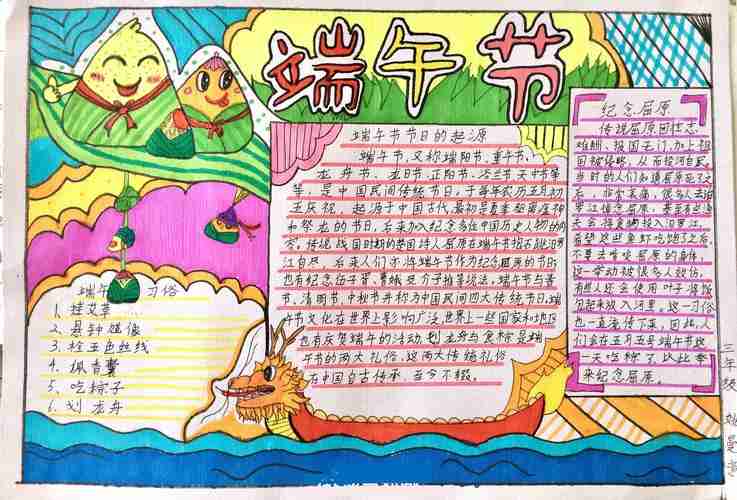 端午节
端午节节日的起源
端午节，又称端阳节、重午节、
龙舟节、龙日节、正阳节、浴兰节、天中节等
等，是中国民间传统节日，于每年农历五月初
五庆祝，起源于中国古代，最初是夏季驱离瘟神
和祭龙的节日，后来为纪念
传说战国时期的楚国诗人屈原在端午节抱石跳汨罗
江自尽，后来人们亦将端午节作为纪念屈原的节日
也有纪念伍子胥、曹娥及介子推等说法，端午节与春
节、清明节、中秋节并称为中国民间四大传统节日，端
午节文化在世界上影响广泛，世界上一些国家和地区
也有庆贺端午的活动，划龙舟与食粽是端
午节的两大礼俗，这两大传统礼俗
在中国自古传承，至今不辍。
纪念屈原
传说屈原因壮志
难酬，报国无门，加上祖
国被侵略，从而投河自尽，
当时的人们知道屈原死了之
后，非常哀痛，很多人去汨
罗江
天会将食物投入汨罗江，
希望这些鱼虾吃饱了之后，
不要去啃咬屈原的身体，
这一举动被很多人效仿，
有些人还会使用叶子将饭
包起来放入河里。这一习俗
也一直流传下来，因此，人
们会在五月五号端午节这
一天吃粽子，以此来
来纪念屈原。
端午 习俗
1、挂艾草
2、悬钟馗像
3、拴五色丝线
4、佩香囊
5、吃粽子
6、划龙舟
三年级